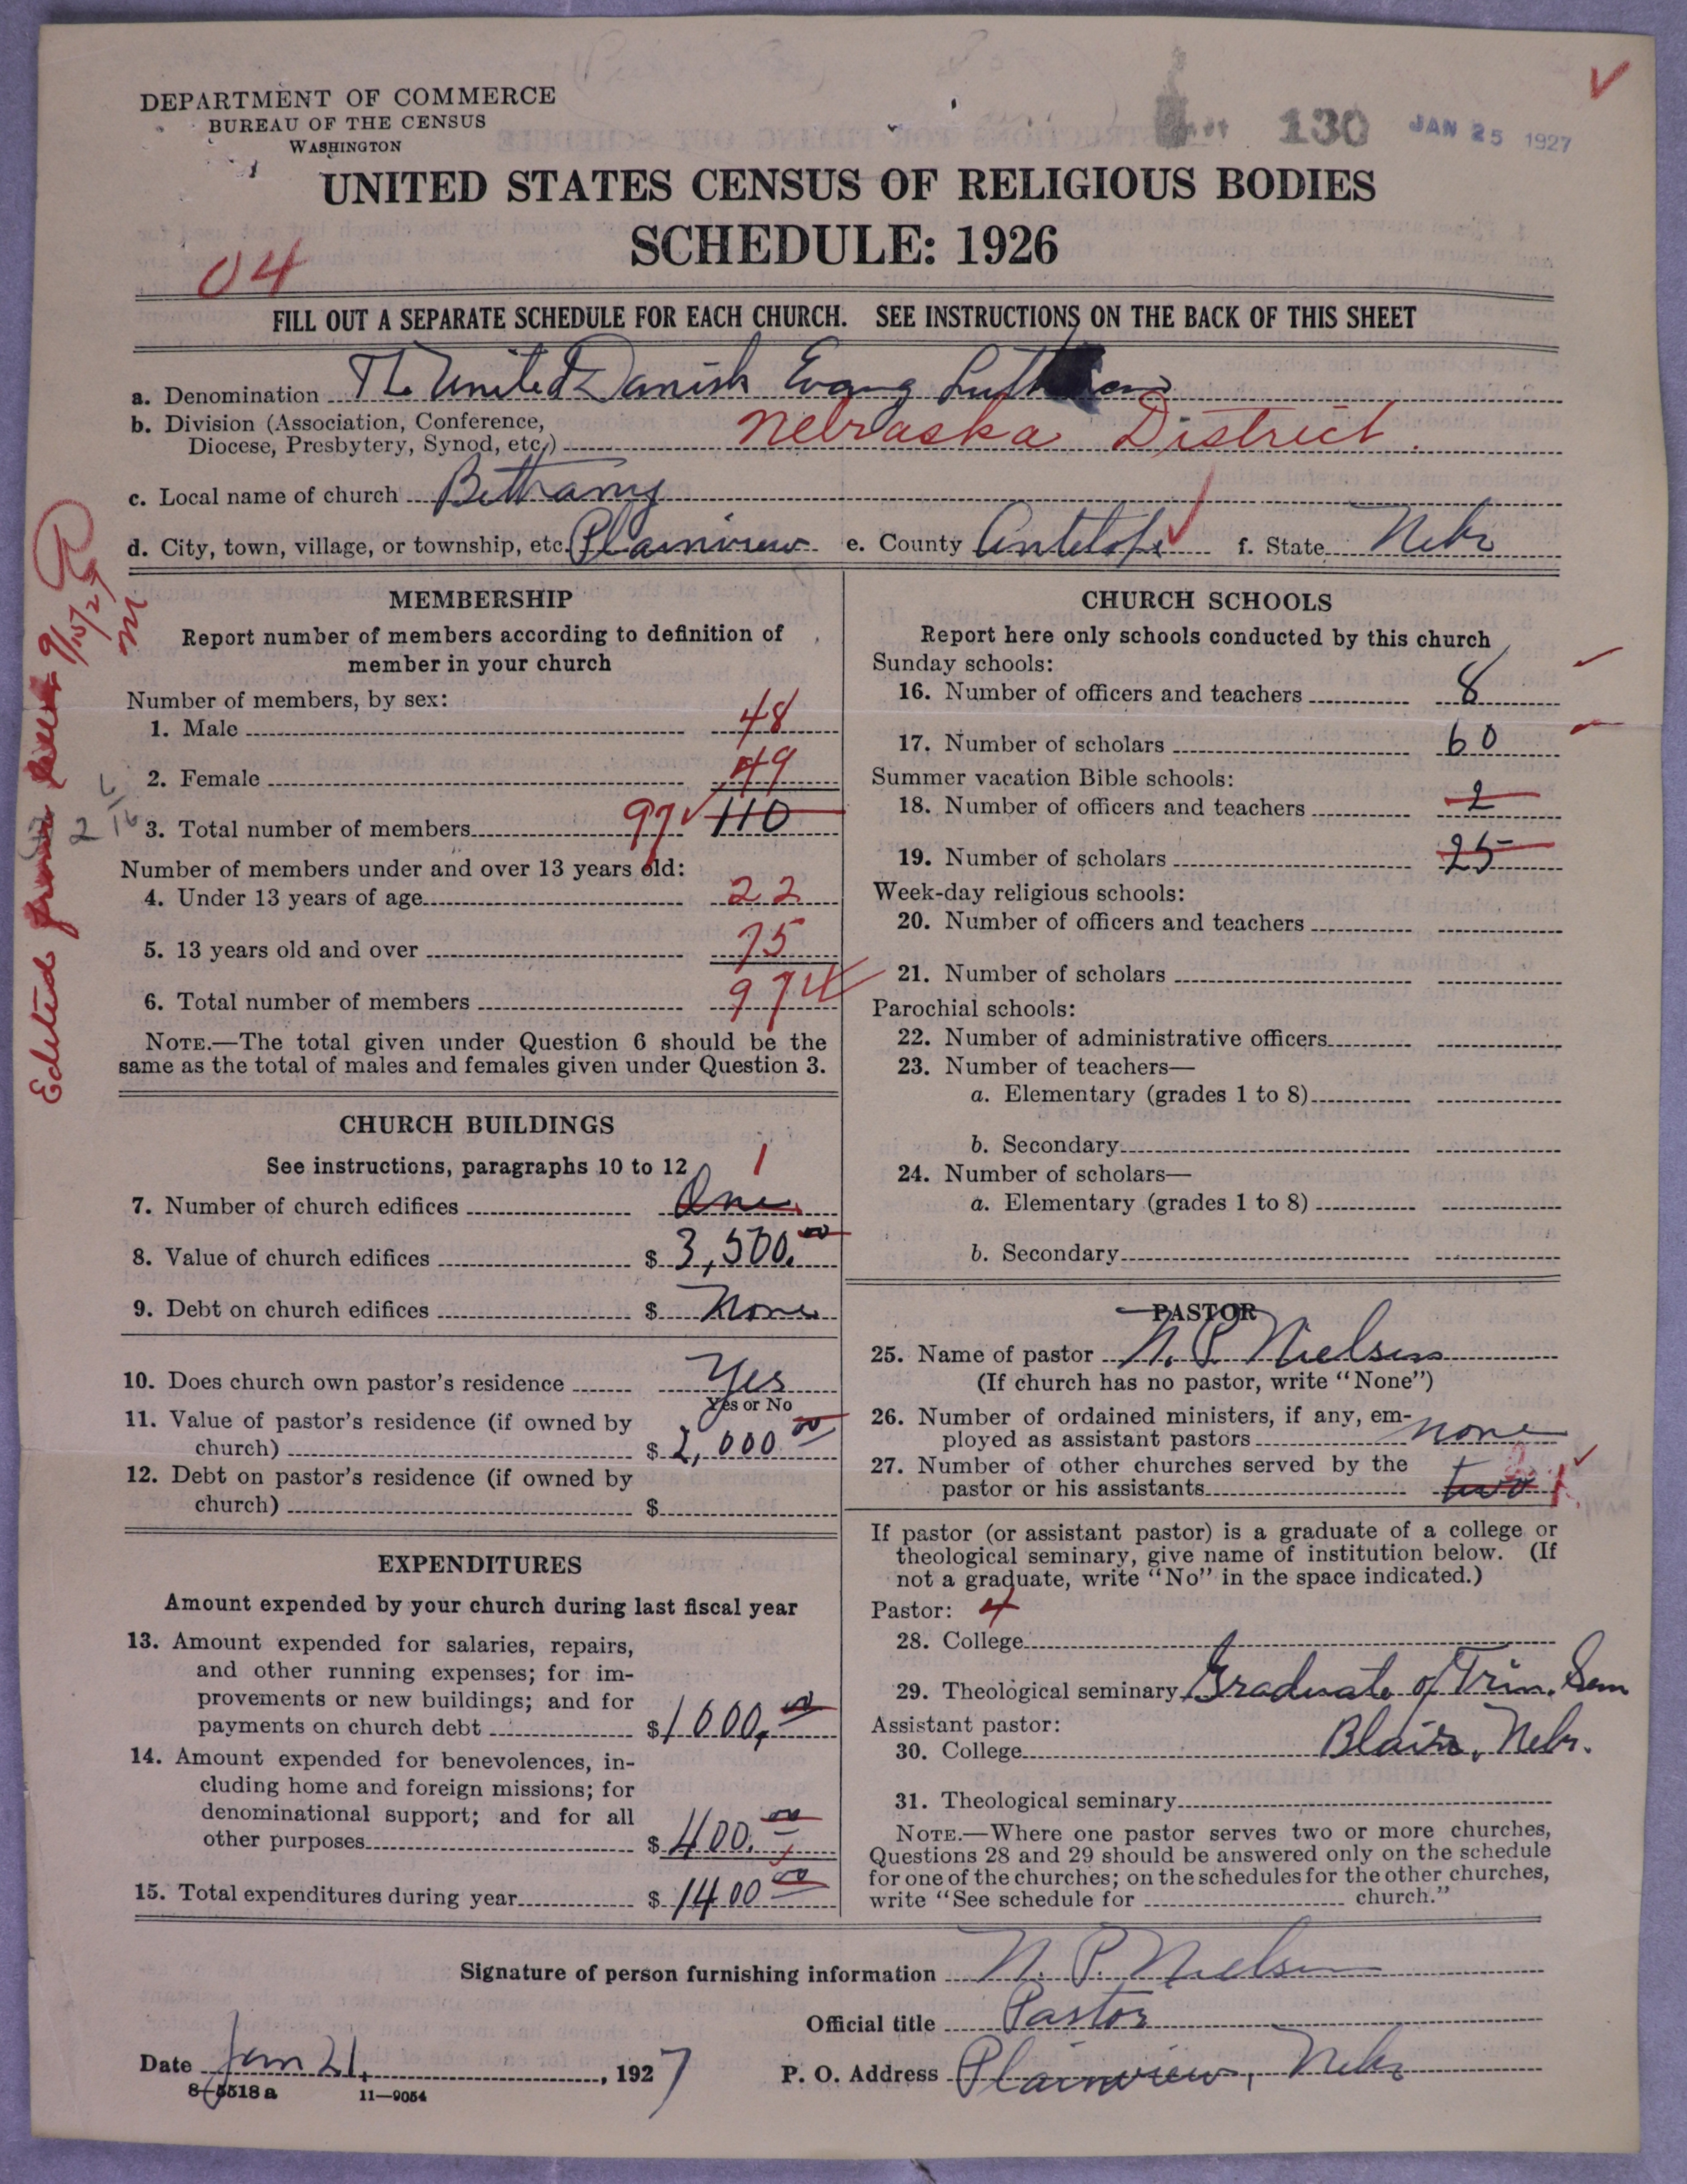 DEPARTMENT OF COMMERCE
BUREAU OF THE CENSUS
WASHINGTON
130 JAN 25 1927
UNITED STATES CENSUS OF RELIGIOUS BODIES
SCHEDULE: 1926
04
FILL OUT A SEPARATE SCHEDULE FOR EACH CHURCH. SEE INSTRUCTIONS ON THE BACK OF THIS SHEET
a. Denomination The United Danish Evang Lutheran
b. Division (Association, Conference,
Diocese, Presbytery, Synod, etc.) Nebraska District.
c. Local name of church Bethany
d. City, town, village, or township, etc. Plainview e. County Antelope f. State Nebr
Edited from 9/15/27
MEMBERSHIP
Report number of members according to definition of
member in your church
Number of members, by sex:
1. Male 48
2. Female 49
3. Total number of members 97 110
Number of members under and over 13 years old:
4. Under 13 years of age 22
5. 13 years old and over 75
6. Total number of members 97
NOTE.—The total given under Question 6 should be the
same as the total of males and females given under Question 3.
CHURCH BUILDINGS
See instructions, paragraphs 10 to 12
1
7. Number of church edifices One
8. Value of church edifices $ 3,500.00
9. Debt on church edifices $ None
10. Does church own pastor's residence Yes
Yes or No
11. Value of pastor's residence (if owned by
church) $ 2,000 00
12. Debt on pastor's residence (if owned by
church) $
EXPENDITURES
Amount expended by your church during last fiscal year
13. Amount expended for salaries, repairs,
and other running expenses; for im-
provements or new buildings; and for
payments on church debt $ 1000.00
14. Amount expended for benevolences, in-
cluding home and foreign missions; for
denominational support; and for all
other purposes $ 400.00
15. Total expenditures during year $ 1400 00
CHURCH SCHOOLS
Report here only schools conducted by this church
Sunday schools:
16. Number of officers and teachers 8
17. Number of scholars 60
Summer vacation Bible schools:
18. Number of officers and teachers 2
19. Number of scholars 25
Week-day religious schools:
20. Number of officers and teachers
21. Number of scholars
Parochial schools:
22. Number of administrative officers
23. Number of teachers—
a. Elementary (grades 1 to 8)
b. Secondary
24. Number of scholars—
a. Elementary (grades 1 to 8)
b. Secondary
PASTOR
25. Name of pastor N. P. Nielsen
(If church has no pastor, write "None")
26. Number of ordained ministers, if any, em-
ployed as assistant pastors none
27. Number of other churches served by the
pastor or his assistants two 1
If pastor (or assistant pastor) is a graduate of a college or
theological seminary, give name of institution below. (If
not a graduate, write "No" in the space indicated.)
Pastor: 4
28. College
29. Theological seminary Graduate of Trin. Sem
Assistant pastor:
30. College Blair, Nebr.
31. Theological seminary
NOTE.—Where one pastor serves two or more churches,
Questions 28 and 29 should be answered only on the schedule
for one of the churches; on the schedules for the other churches,
write "See schedule for church."
Signature of person furnishing information N. P. Nielsen
Official title Pastor
Date Jan 21, 1927 P. O. Address Plainview, Nebr
8-5518 a 11—9054